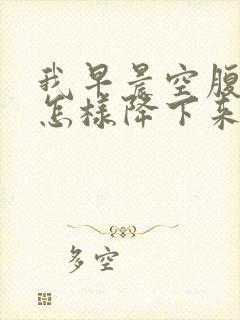 我早晨空腹
怎样降下来
多空